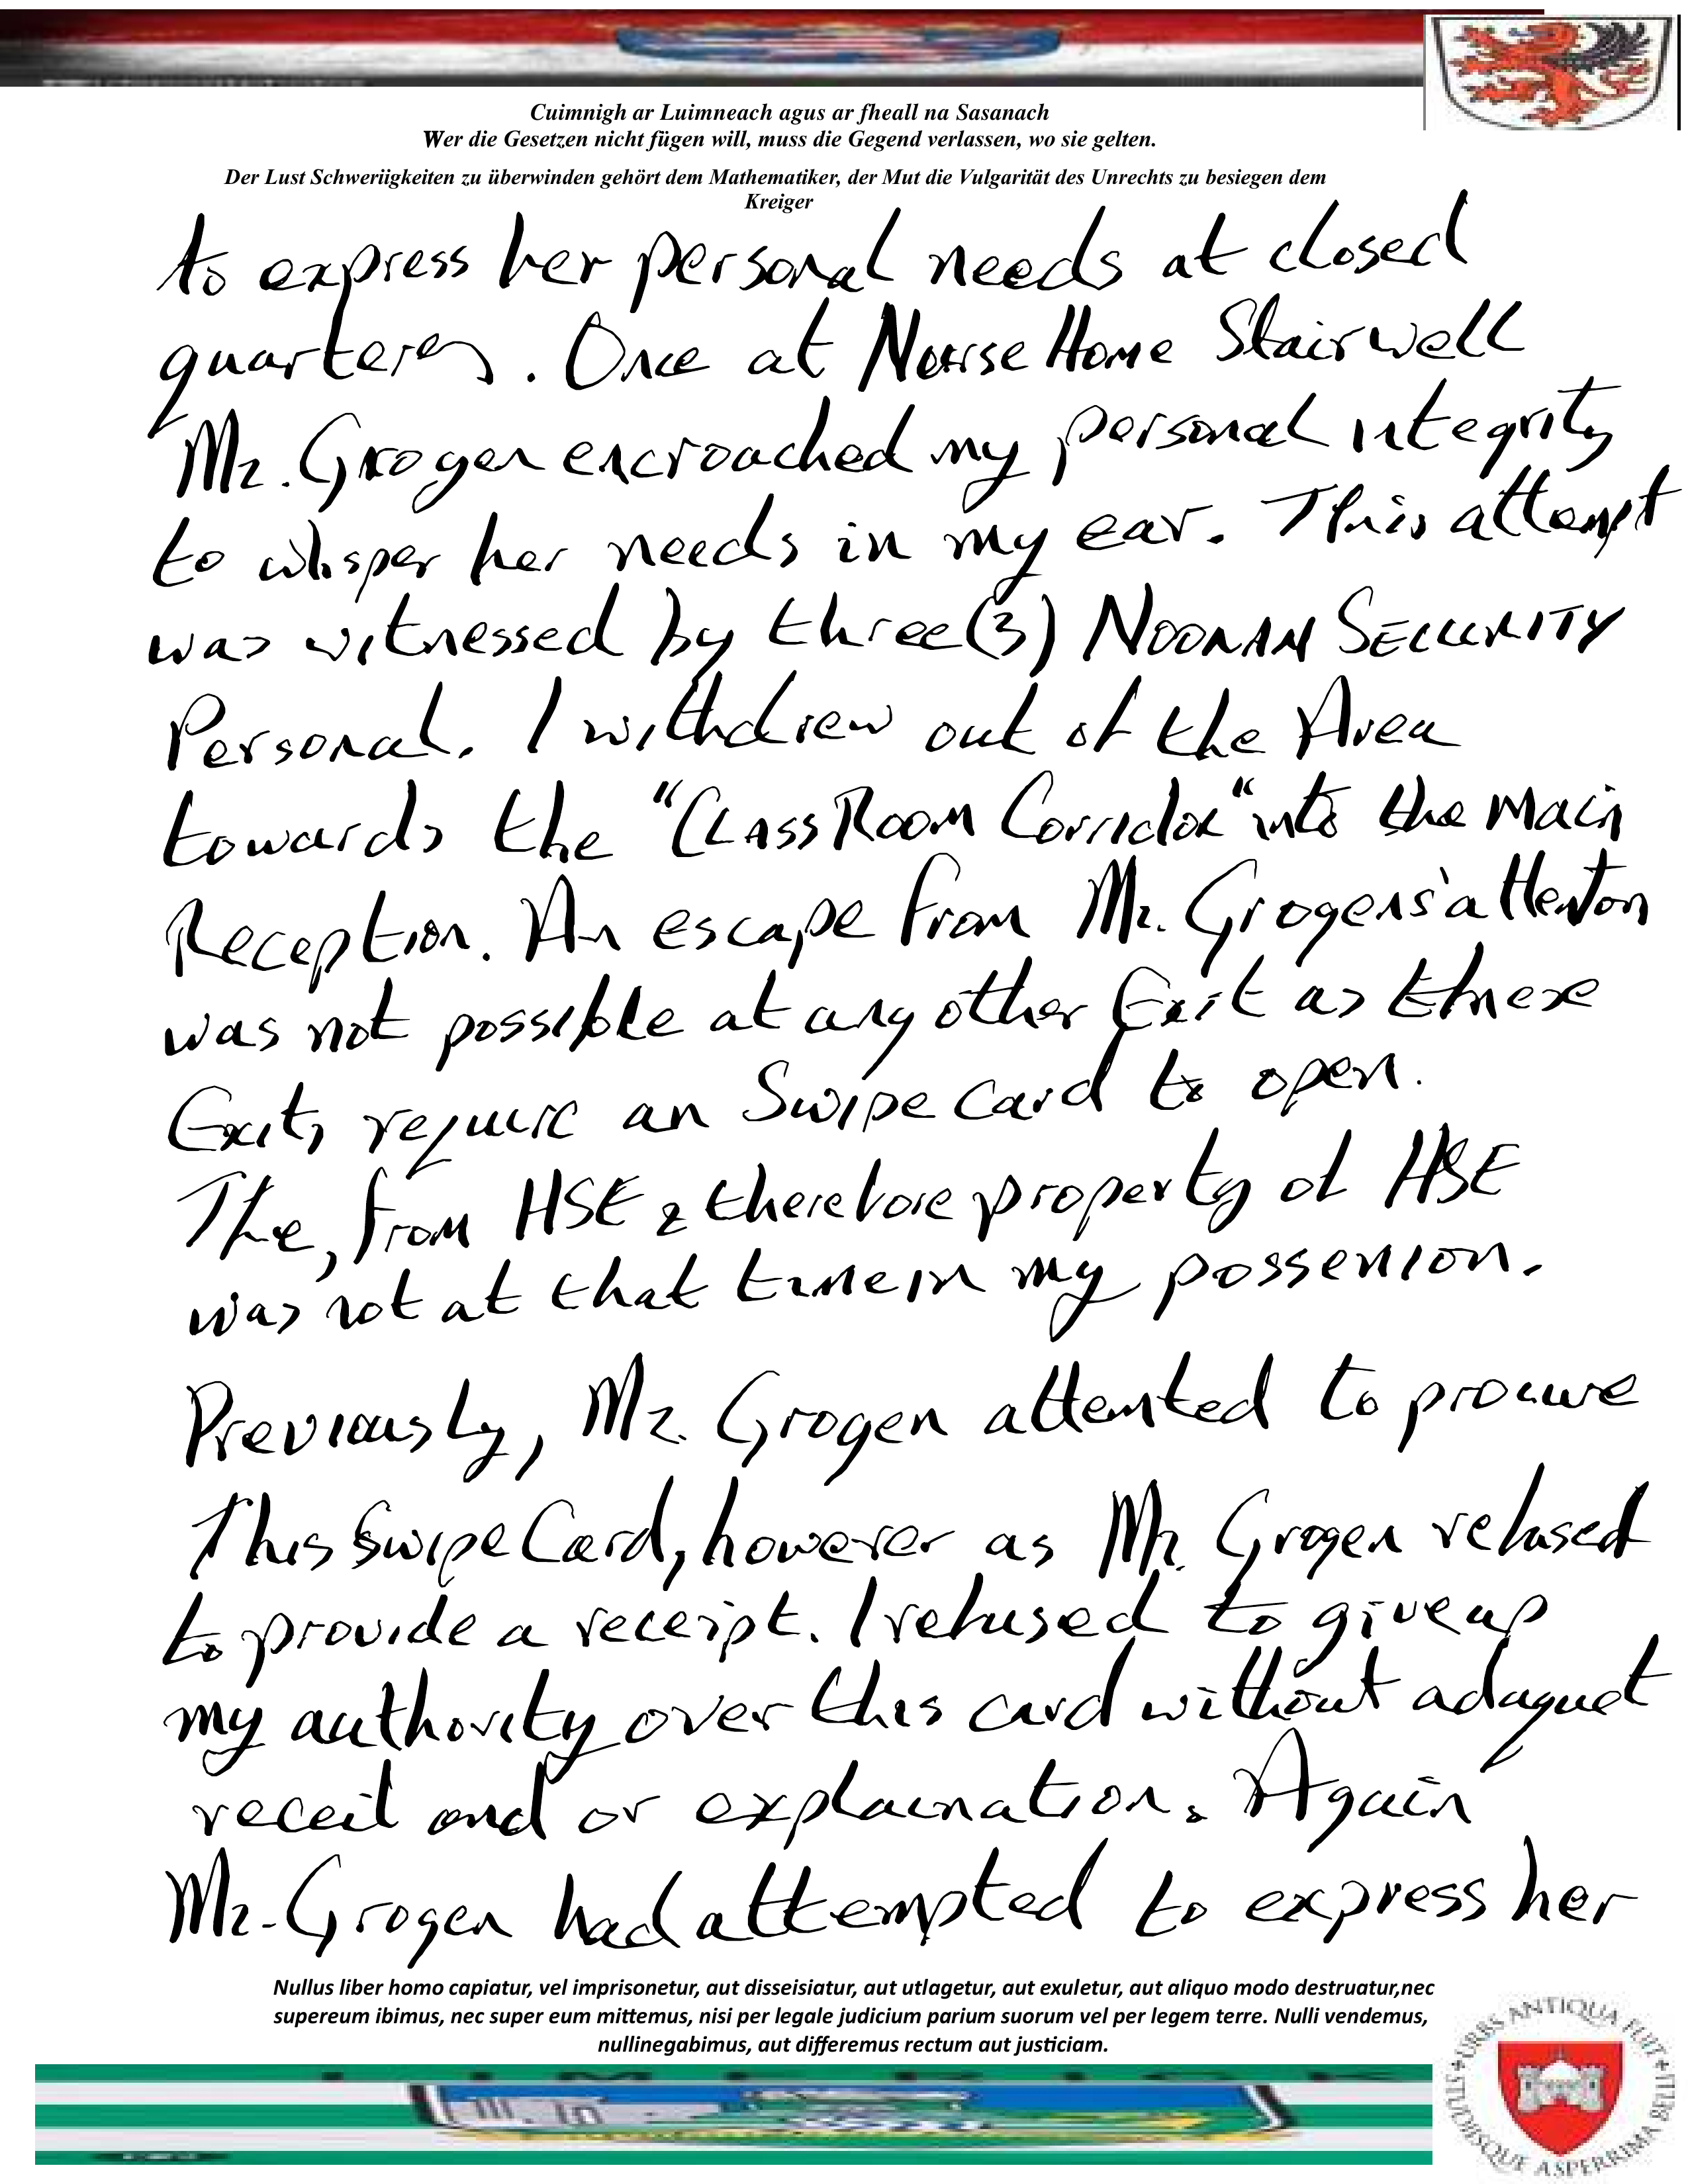 Cuimnigh ar Luimneach agus ar fheall na Sasanach
Wer die Gesetzen nicht fügen will, muss die Gegend verlassen, wo sie gelten.
Der Lust Schweriigkeiten zu überwinden gehört dem Mathematiker, der Mut die Vulgarität des Unrechts zu besiegen dem
Kreiger
to express her personal needs at closed
quarteres. Once at Nourse Home Stairwell
Mz. Grogen encroached my personal integrity
to whisper her needs in my ear. This attempt
was witnessed by three(3) NOONAN SECURITY
Personal. I withdrew out of the Area
towards the "CLASS ROOM Corridor" into the Main
Reception. An escape from Mz. Grogens' attenton
was not possible at any other Exit as these
Exits require an Swipe Card to open.
The, from HSE & therefore property of HSE
was not at that time in my possension.
Previously, Mz. Grogen attemted to procure
This Swipe Card, however as Mz. Grogen refused
to provide a receipt. I refused to give up
my authority over this card without adaquet
receit and or explaination. Again
Mz. Grogen had attempted to express her
Nullus liber homo capiatur, vel imprisonetur, aut disseisiatur, aut utlagetur, aut exuletur, aut aliquo modo destruatur,nec
supereum ibimus, nec super eum mittemus, nisi per legale judicium parium suorum vel per legem terre. Nulli vendemus,
nullinegabimus, aut differemus rectum aut justiciam.
URBS ANTIQUA FUIT STUDIISQUE ASPERRIMA BELLI